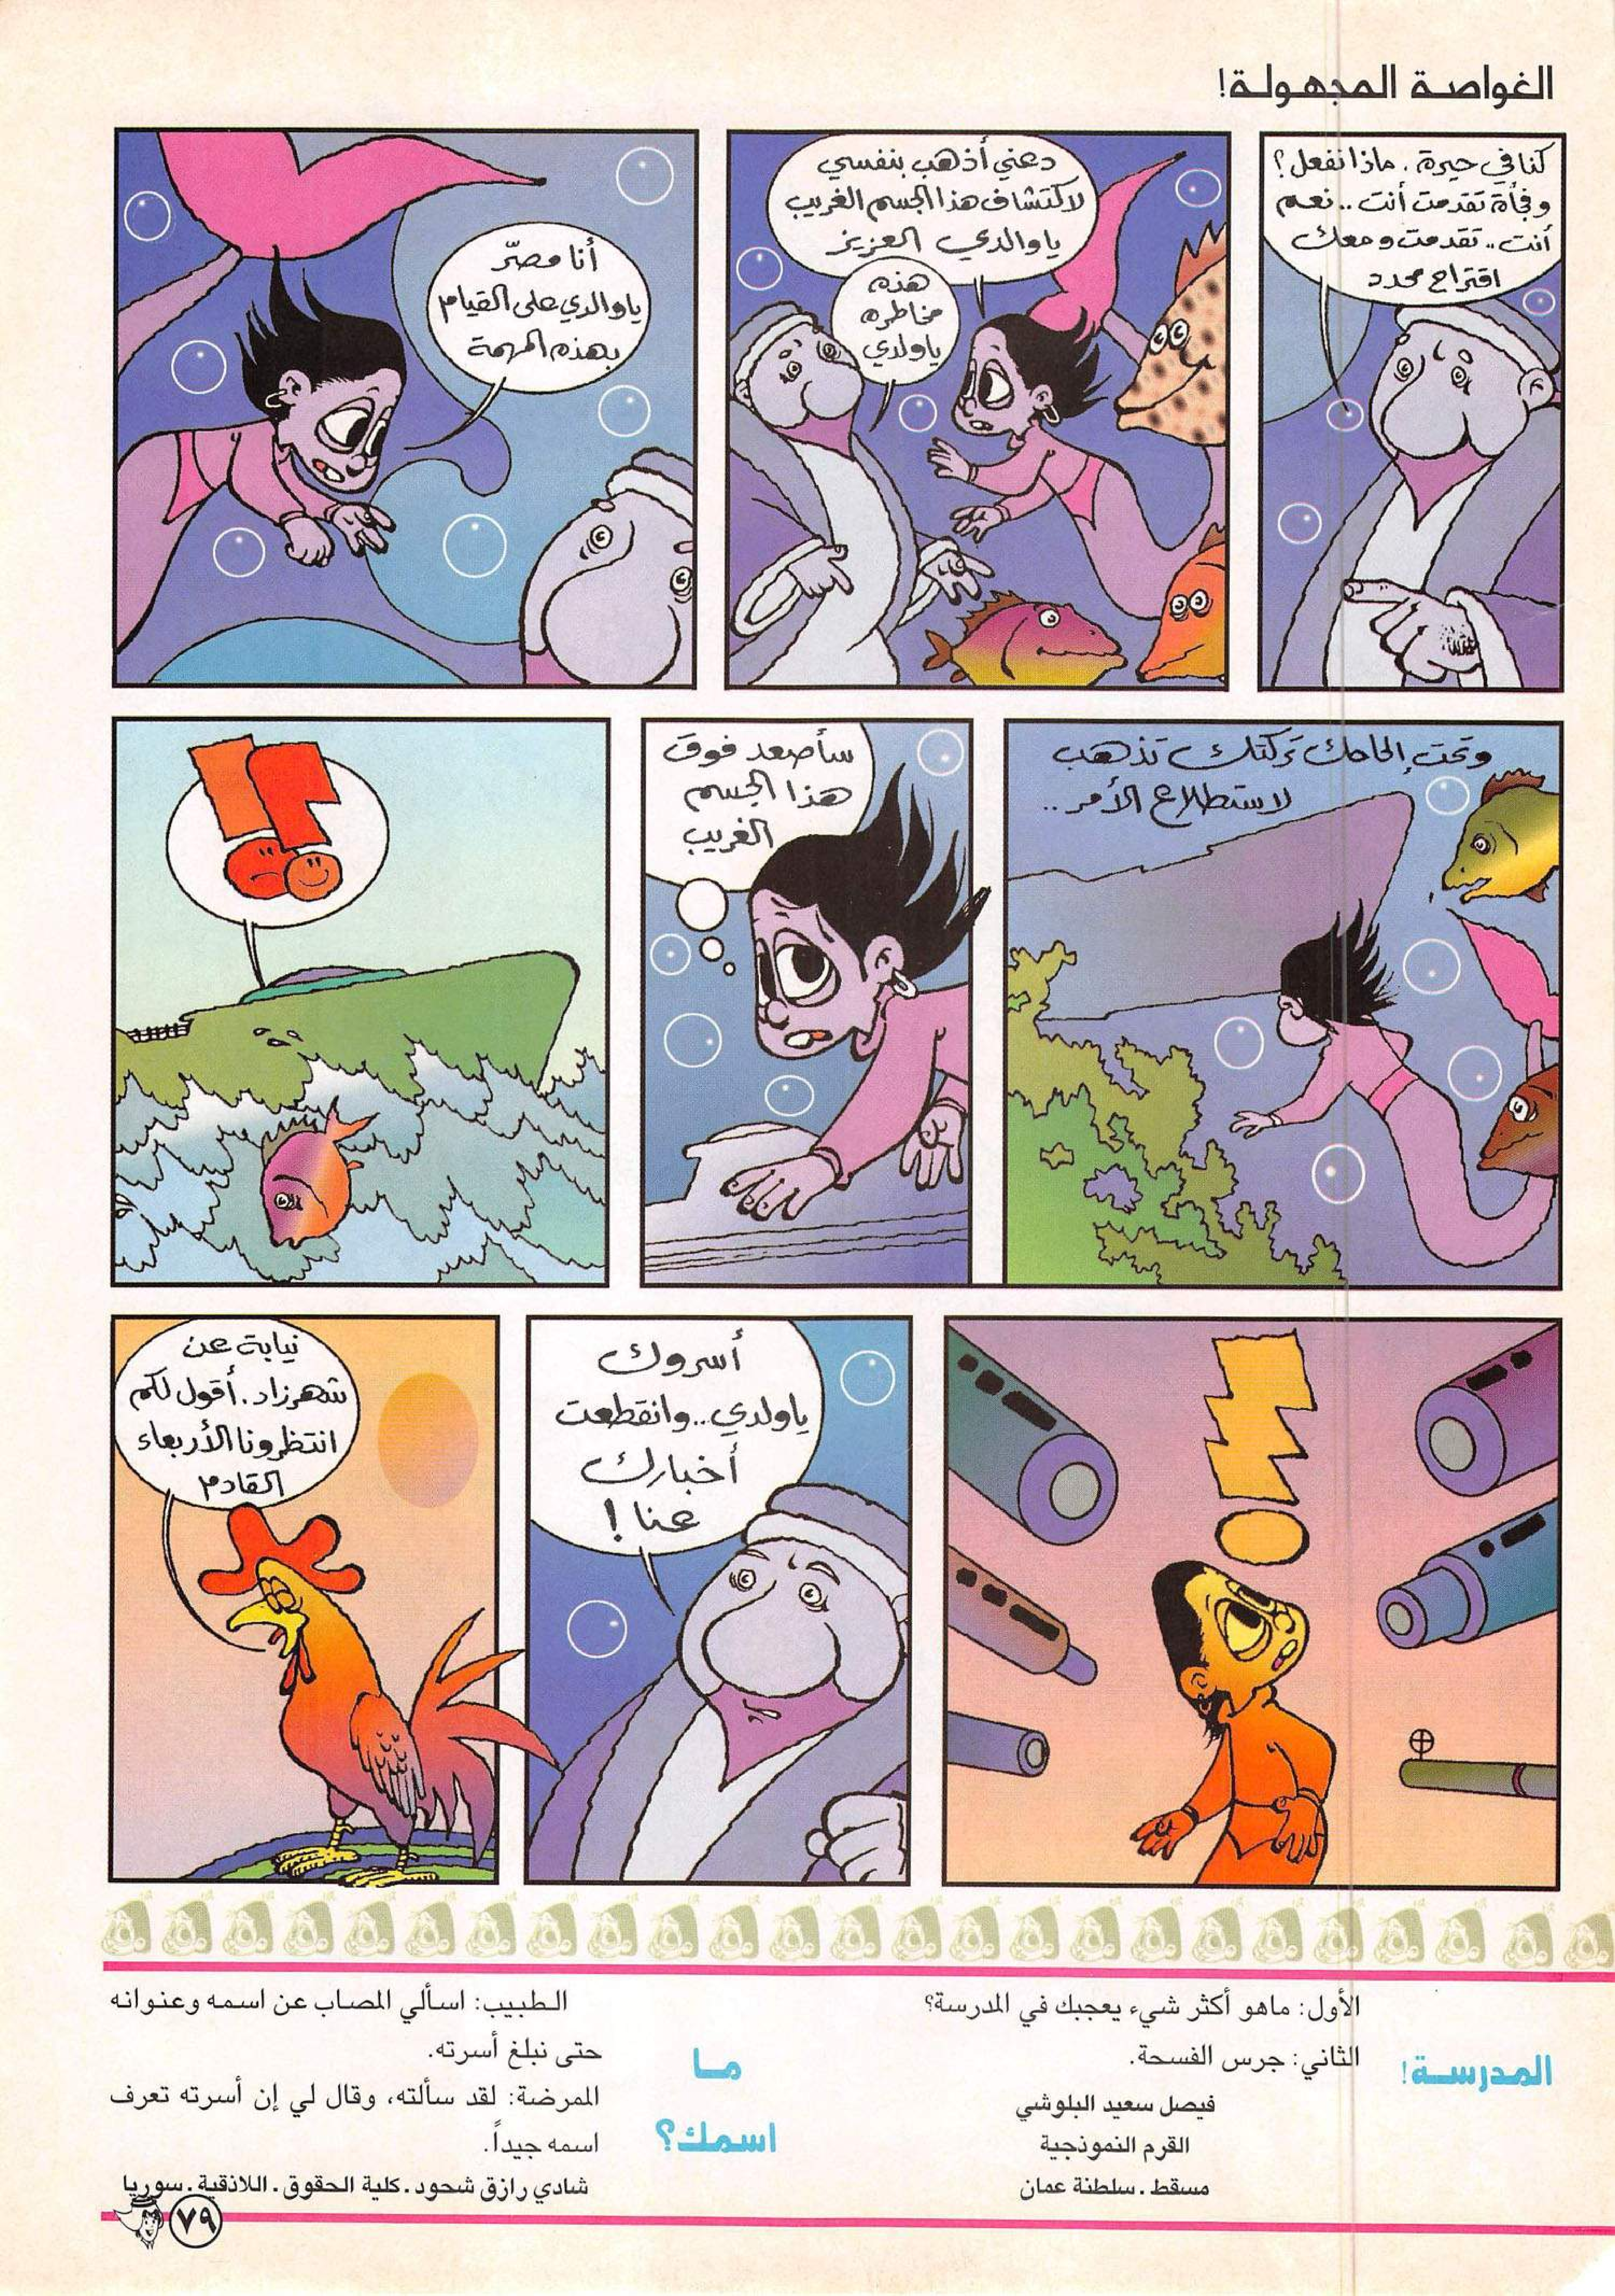 الغواصة المجهولة!
كنا في حيرة. ماذا نفعل؟
وفجأة تقدمت أنت.. نعم
أنت.. تقدمت ومعك
اقتراح محدد
دعني أذهب بنفسي
لاكتشاف هذا الجسم الغريب
يا والدي العزيز
هذه
مخاطره
يا ولدي
أنا مصرّ
يا والدي على القيام
بهذه المهمة
وتحت إلحاحك تركتك تذهب
لاستطلاع الأمر..
سأصعد فوق
هذا الجسم
الغريب
!!
!
أسروك
يا ولدي.. وانقطعت
أخبارك
عنا!
نيابة عن
شهرزاد. أقول لكم
انتظرونا الأربعاء
القادم
المدرسة!
الأول: ماهو أكثر شيء يعجبك في المدرسة؟
الثاني: جرس الفسحة.
فيصل سعيد البلوشي
القرم النموذجية
مسقط. سلطنة عمان
ما
اسمك؟
الطبيب: اسألي المصاب عن اسمه وعنوانه
حتى نبلغ أسرته.
الممرضة: لقد سألته، وقال لي إن أسرته تعرف
اسمه جيداً.
شادي رازق شحود. كلية الحقوق. اللاذقية. سوريا
٧٩